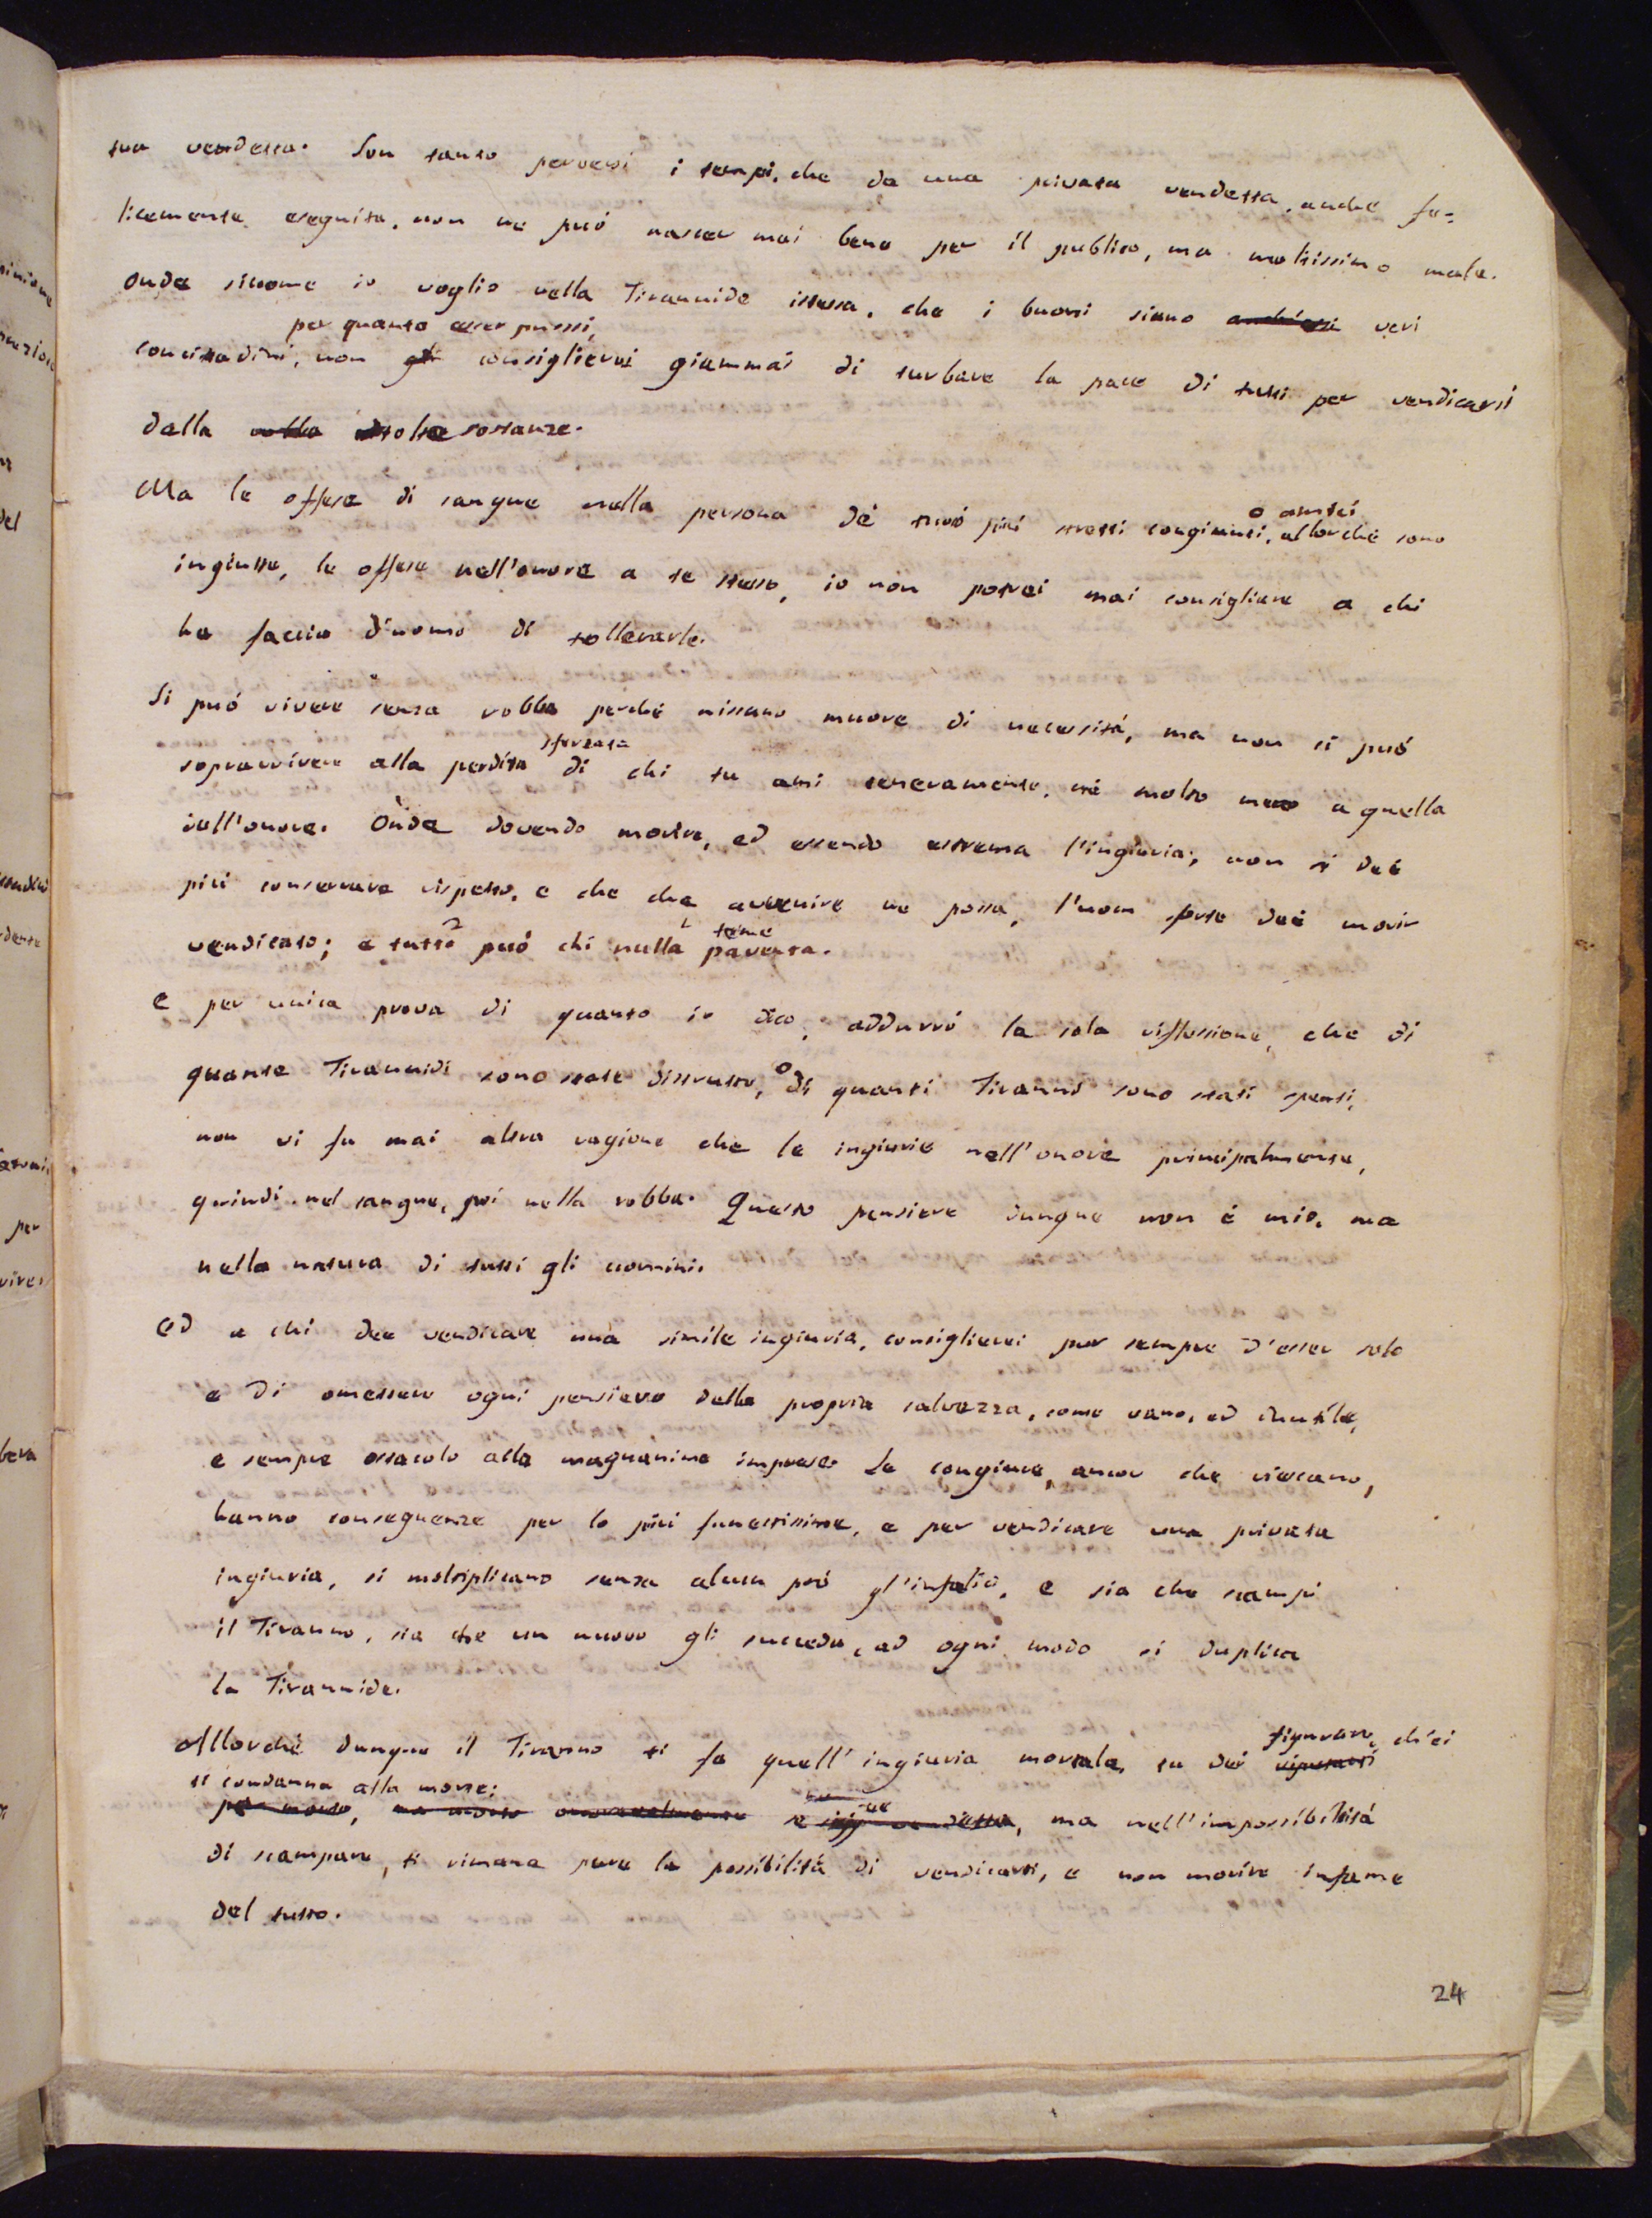 sua vendetta. Son tanto perversi i tempi, che da una privata vendetta, anche fe=
licemente eseguita, non ne può nascer mai bene per il publico, ma moltissimo male.
Onde siccome io voglio nella Tirannide istessa, che i buoni siano anch'essi veri
per quanto esser puossi,
concittadini, non gli consiglierei giammai di turbare la pace di tutti per vendicarsi
delle tolte sostanze.
Ma le offese di sangue nella persona de' tuoi più stretti congiunti, o amici allorché sono
ingiuste, le offese nell'onore a te stesso, io non potrei mai consigliare a chi
ha faccia d'uomo di tollerarle.
Si può vivere senza robba perché nissuno muore di necessità, ma non si può
sopravvivere alla perdita sforzata di chi tu ami teneramente, né molto meno a quella
dell'onore. Onde dovendo morire, ed essendo estrema l'ingiuria, non si dee
più conservare rispetto, e che che avvenire ne possa, l'uom forte dee morir
vendicato; e tutto può chi nulla teme paventa.
e per unica prova di quanto io dico, addurrò la sola riflessione, che di
quante Tirannidi sono state distrutte, o di quanti Tiranni sono stati spenti,
non vi fu mai altra ragione che le ingiurie nell'onore principalmente,
quindi nel sangue, poi nella robba. Questo pensiere dunque non è mio, ma
nella natura di tutti gli uomini.
ed a chi dee vendicare una simile ingiuria, consiglierei pur sempre d'esser solo
e di omettere ogni pensiero della propria salvezza, come vano, ed inutile,
e sempre ostacolo alla magnanima impresa. Le congiure, ancor che riescano,
hanno conseguenze per lo più funestissime, e per vendicare una privata
ingiuria, si moltiplicano senza alcun prò gl'infelici, e sia che scampi
il Tiranno, sia che un nuovo gli succeda, ad ogni modo si duplica
la Tirannide.
Allorché dunque il Tiranno ti fa quell'ingiuria mortale, tu dei riputarti figurare, ch'ei
ti condanna alla morte;
per morto, ma morto onoratamente se vendetta, ma nell'impossibilità
di scampare, ti rimane pure la possibilità di vendicarti, e non morire infame
del tutto.
24